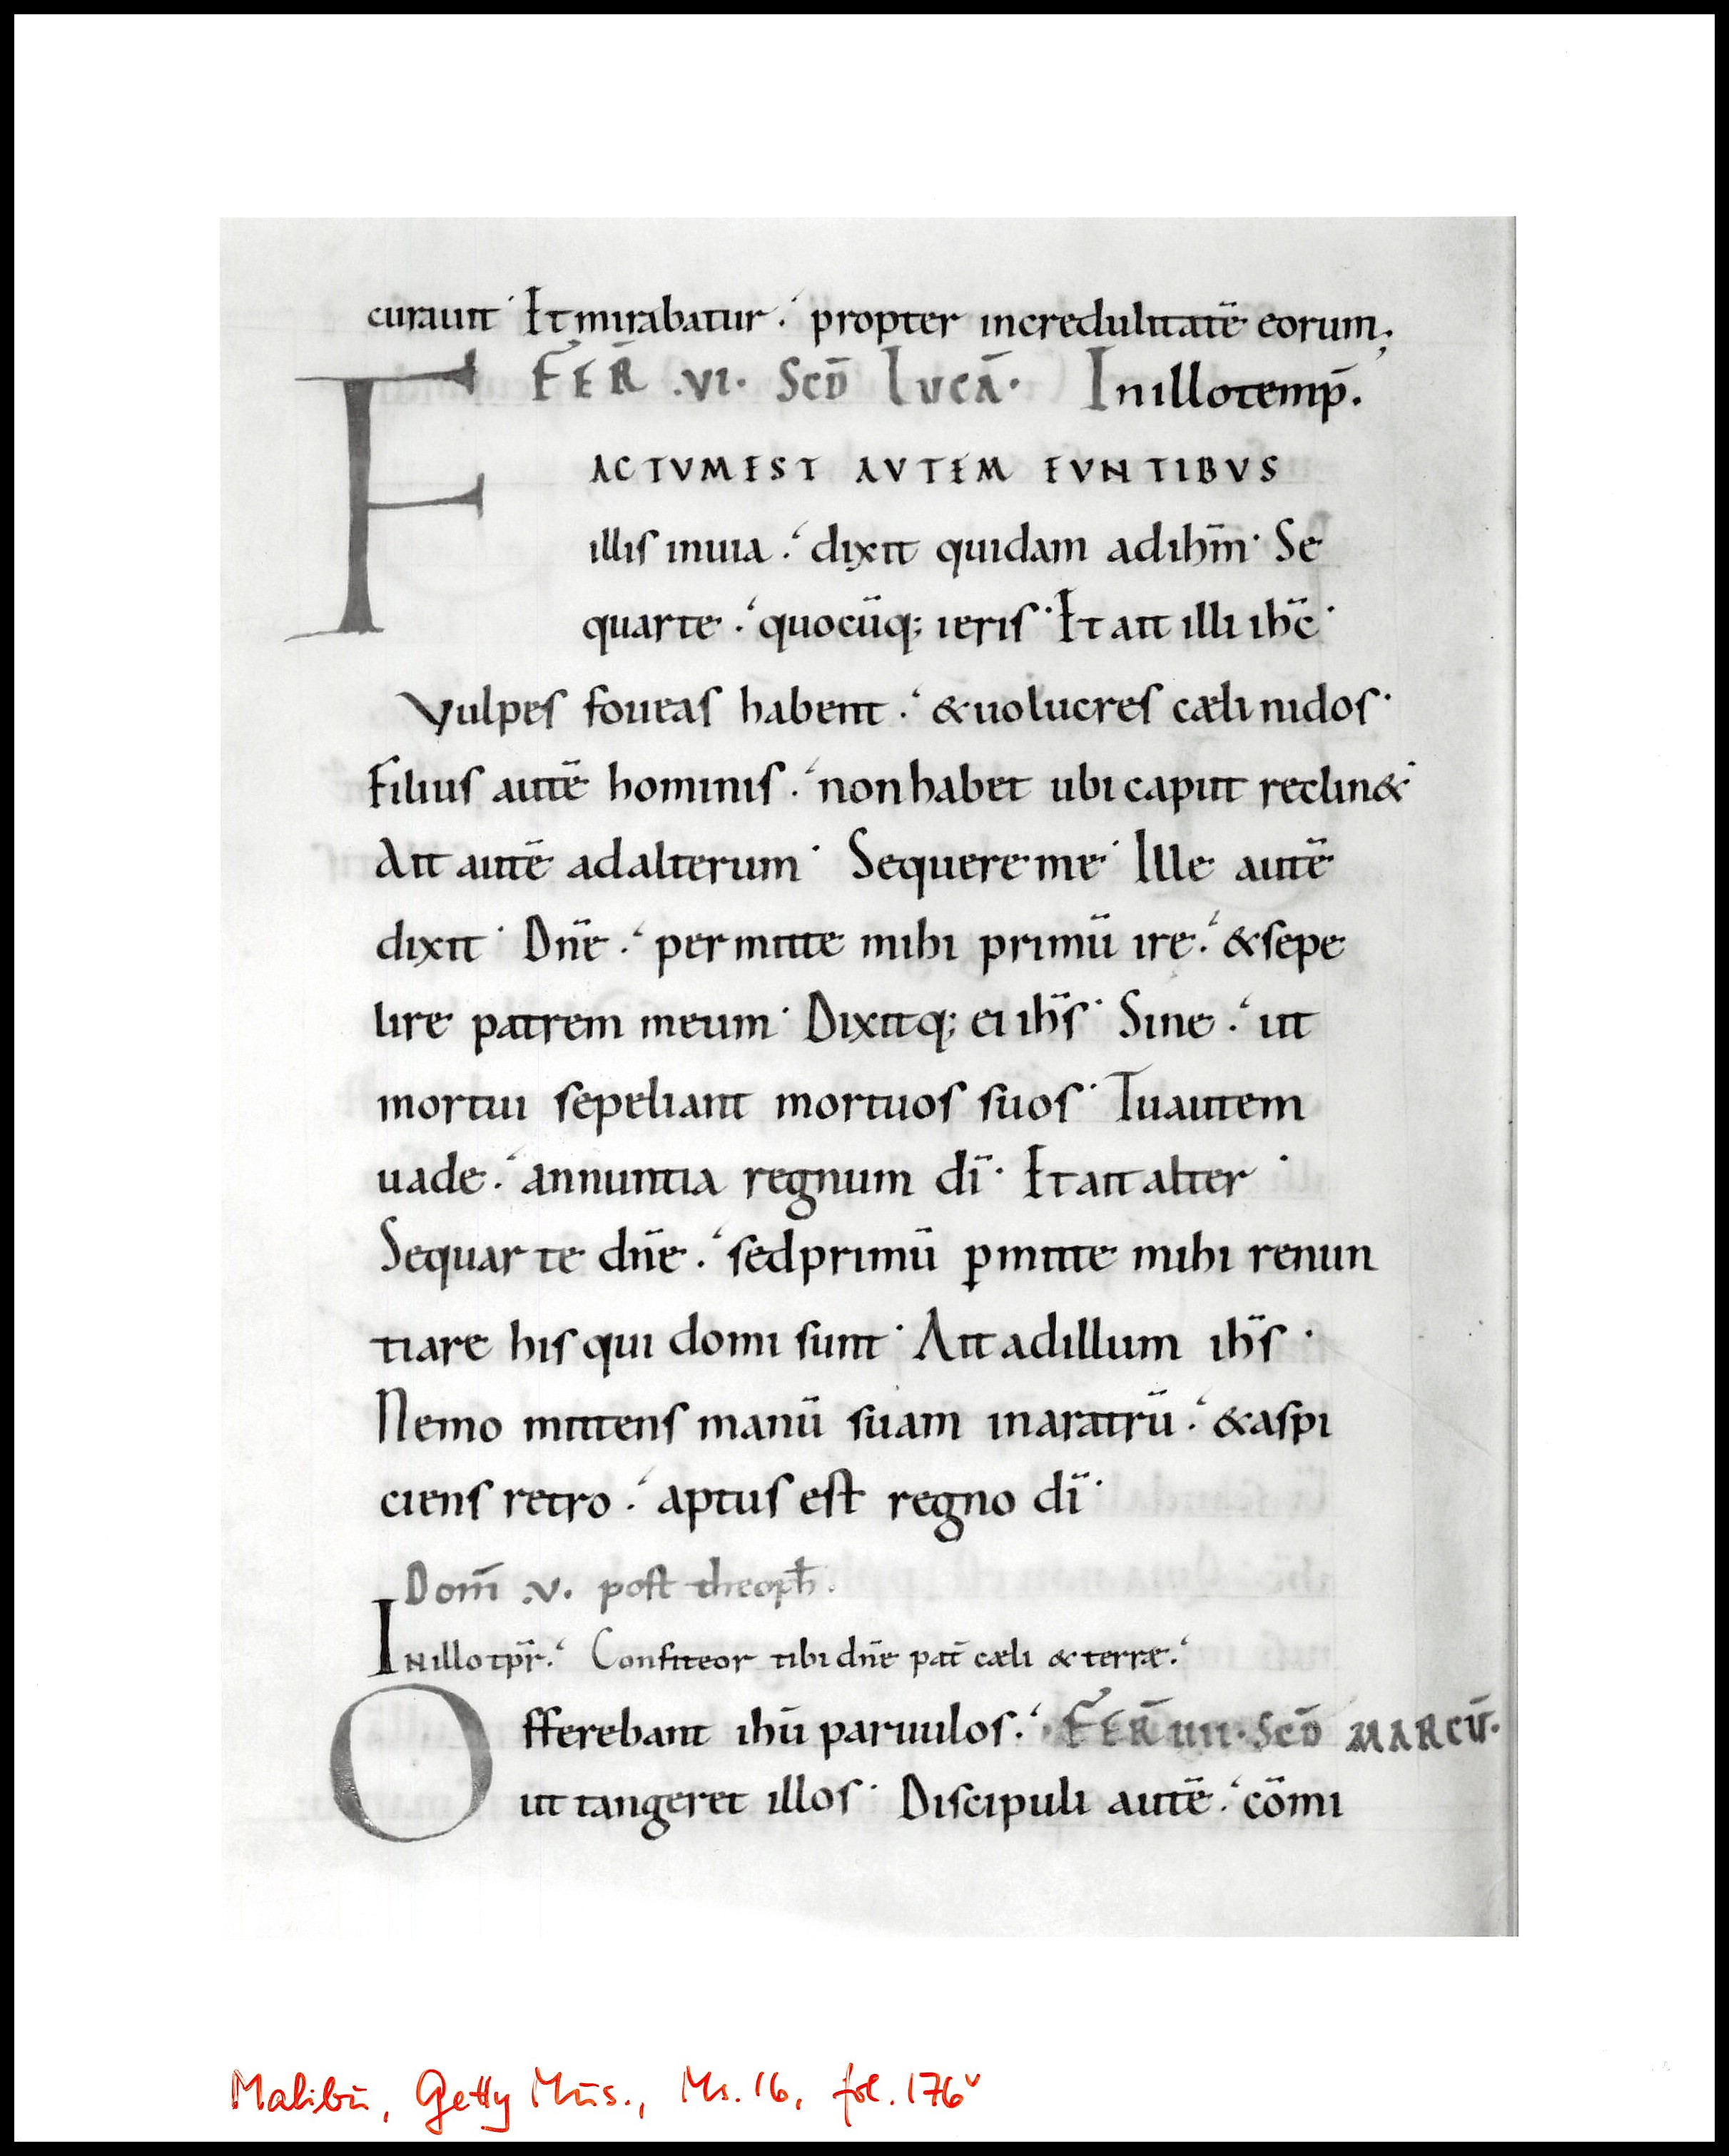 curauit · Et mirabatur . propter incredulitatē eorum;
FER̄ .VI. SCD̄ LUCĀ. In illo temp̄.
F ACTVM EST AVTEM EVNTIBVS
illis in uia . dixit quidam ad ihm̄ · Se
quar te . quocūq; ieris · Et ait illi ihc̄ ·
Vulpes foueas habent . & uolucres cæli nidos ·
Filius autē hominis . non habet ubi caput reclin& ·
Ait autē ad alterum · Sequere me · Ille autē
dixit · Dn̄e . permitte mihi primū ire . & sepe
lire patrem meum · Dixitq; ei ihs̄ · Sine . ut
mortui sepeliant mortuos suos · Tu autem
uade . annuntia regnum dī · Et ait alter ·
Sequar te dn̄e . sed primū ꝑmitte mihi renun
tiare his qui domi sunt · Ait ad illum ihs̄ ·
Nemo mittens manū suam in aratrū . & aspi
ciens retro . aptus est regno dī ·
Dom̄ .v. post theoph̄.
In illo tpr̄. Confiteor tibi dn̄e pat̄ cæli & terræ.
Offerebant ihū paruulos . FER̄ IIII. SCD̄ MARCŪ.
ut tangeret illos · Discipuli autē . cōmi
Malibu, Getty Mus., Ms. 16, fol. 176v